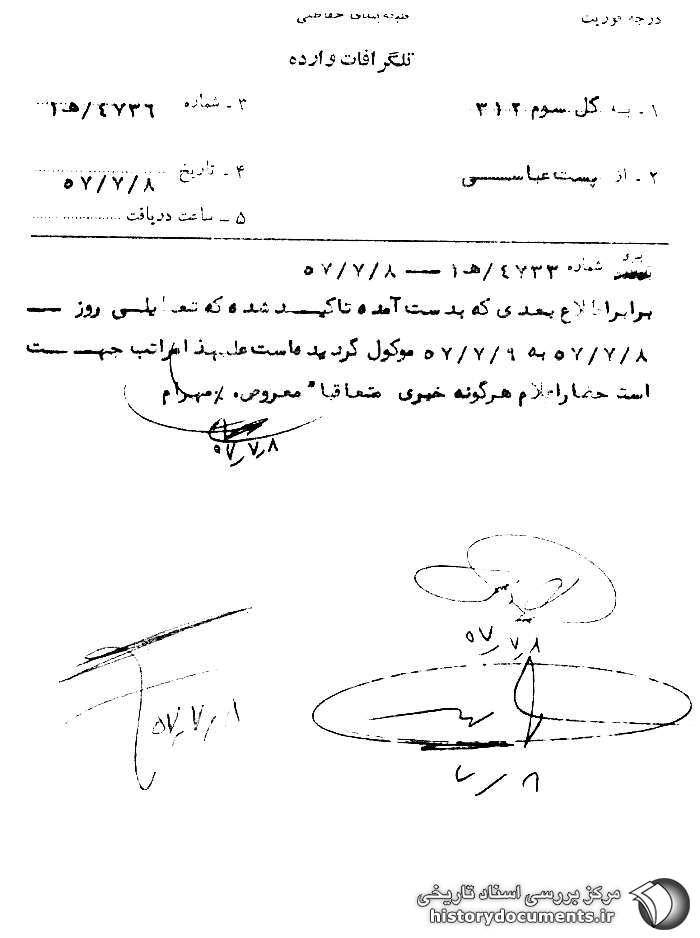 درجه فوریت
طبقه بندی حفاظتی
تلگرافات وارده
۱ - به کل سوم ۳۱۲
۳ - شماره ۴۷۳۶/هـ۱
۲ - از پست عباسی
۴ - تاریخ ۵۷/۷/۸
۵ - ساعت دریافت
پیرو شماره ۴۷۳۳/هـ۱ — ۵۷/۷/۸
برابر اطلاع بعدی که بدست آمده تاکید شده که تعطیلی روز —
۵۷/۷/۸ به ۵۷/۷/۹ موکول گردیده است علیهذا مراتب جهت
است حضار اعلام هرگونه خبری متعاقباً معروض. مهرام
۵۷/۷/۸
۵۷/۷/۸
۵۷/۷/۸
۷/۸
مرکز بررسی اسناد تاریخی
historydocuments.ir